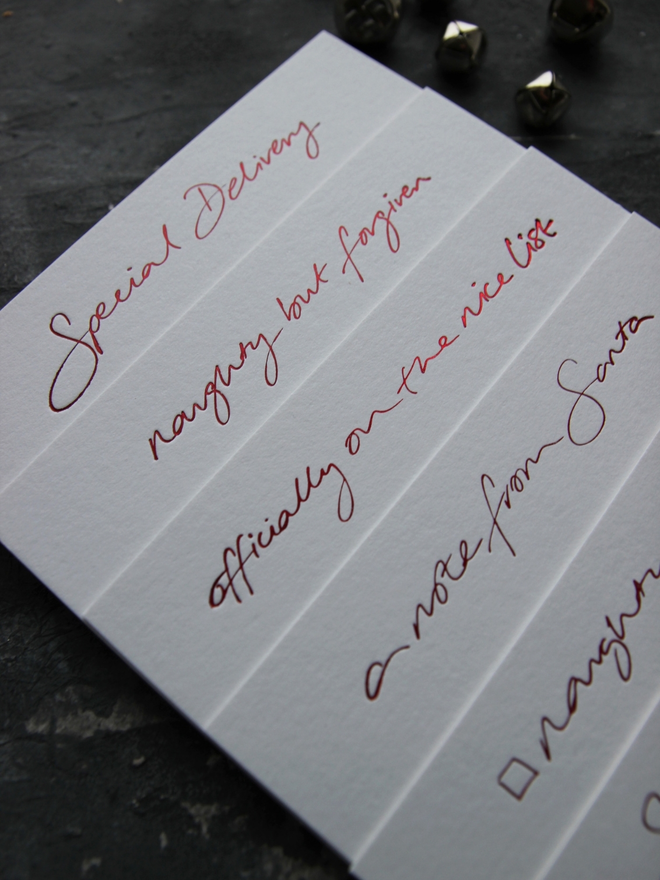 Special Delivery
naughty but forgiven
officially on the nice list
a note from Santa
naughty